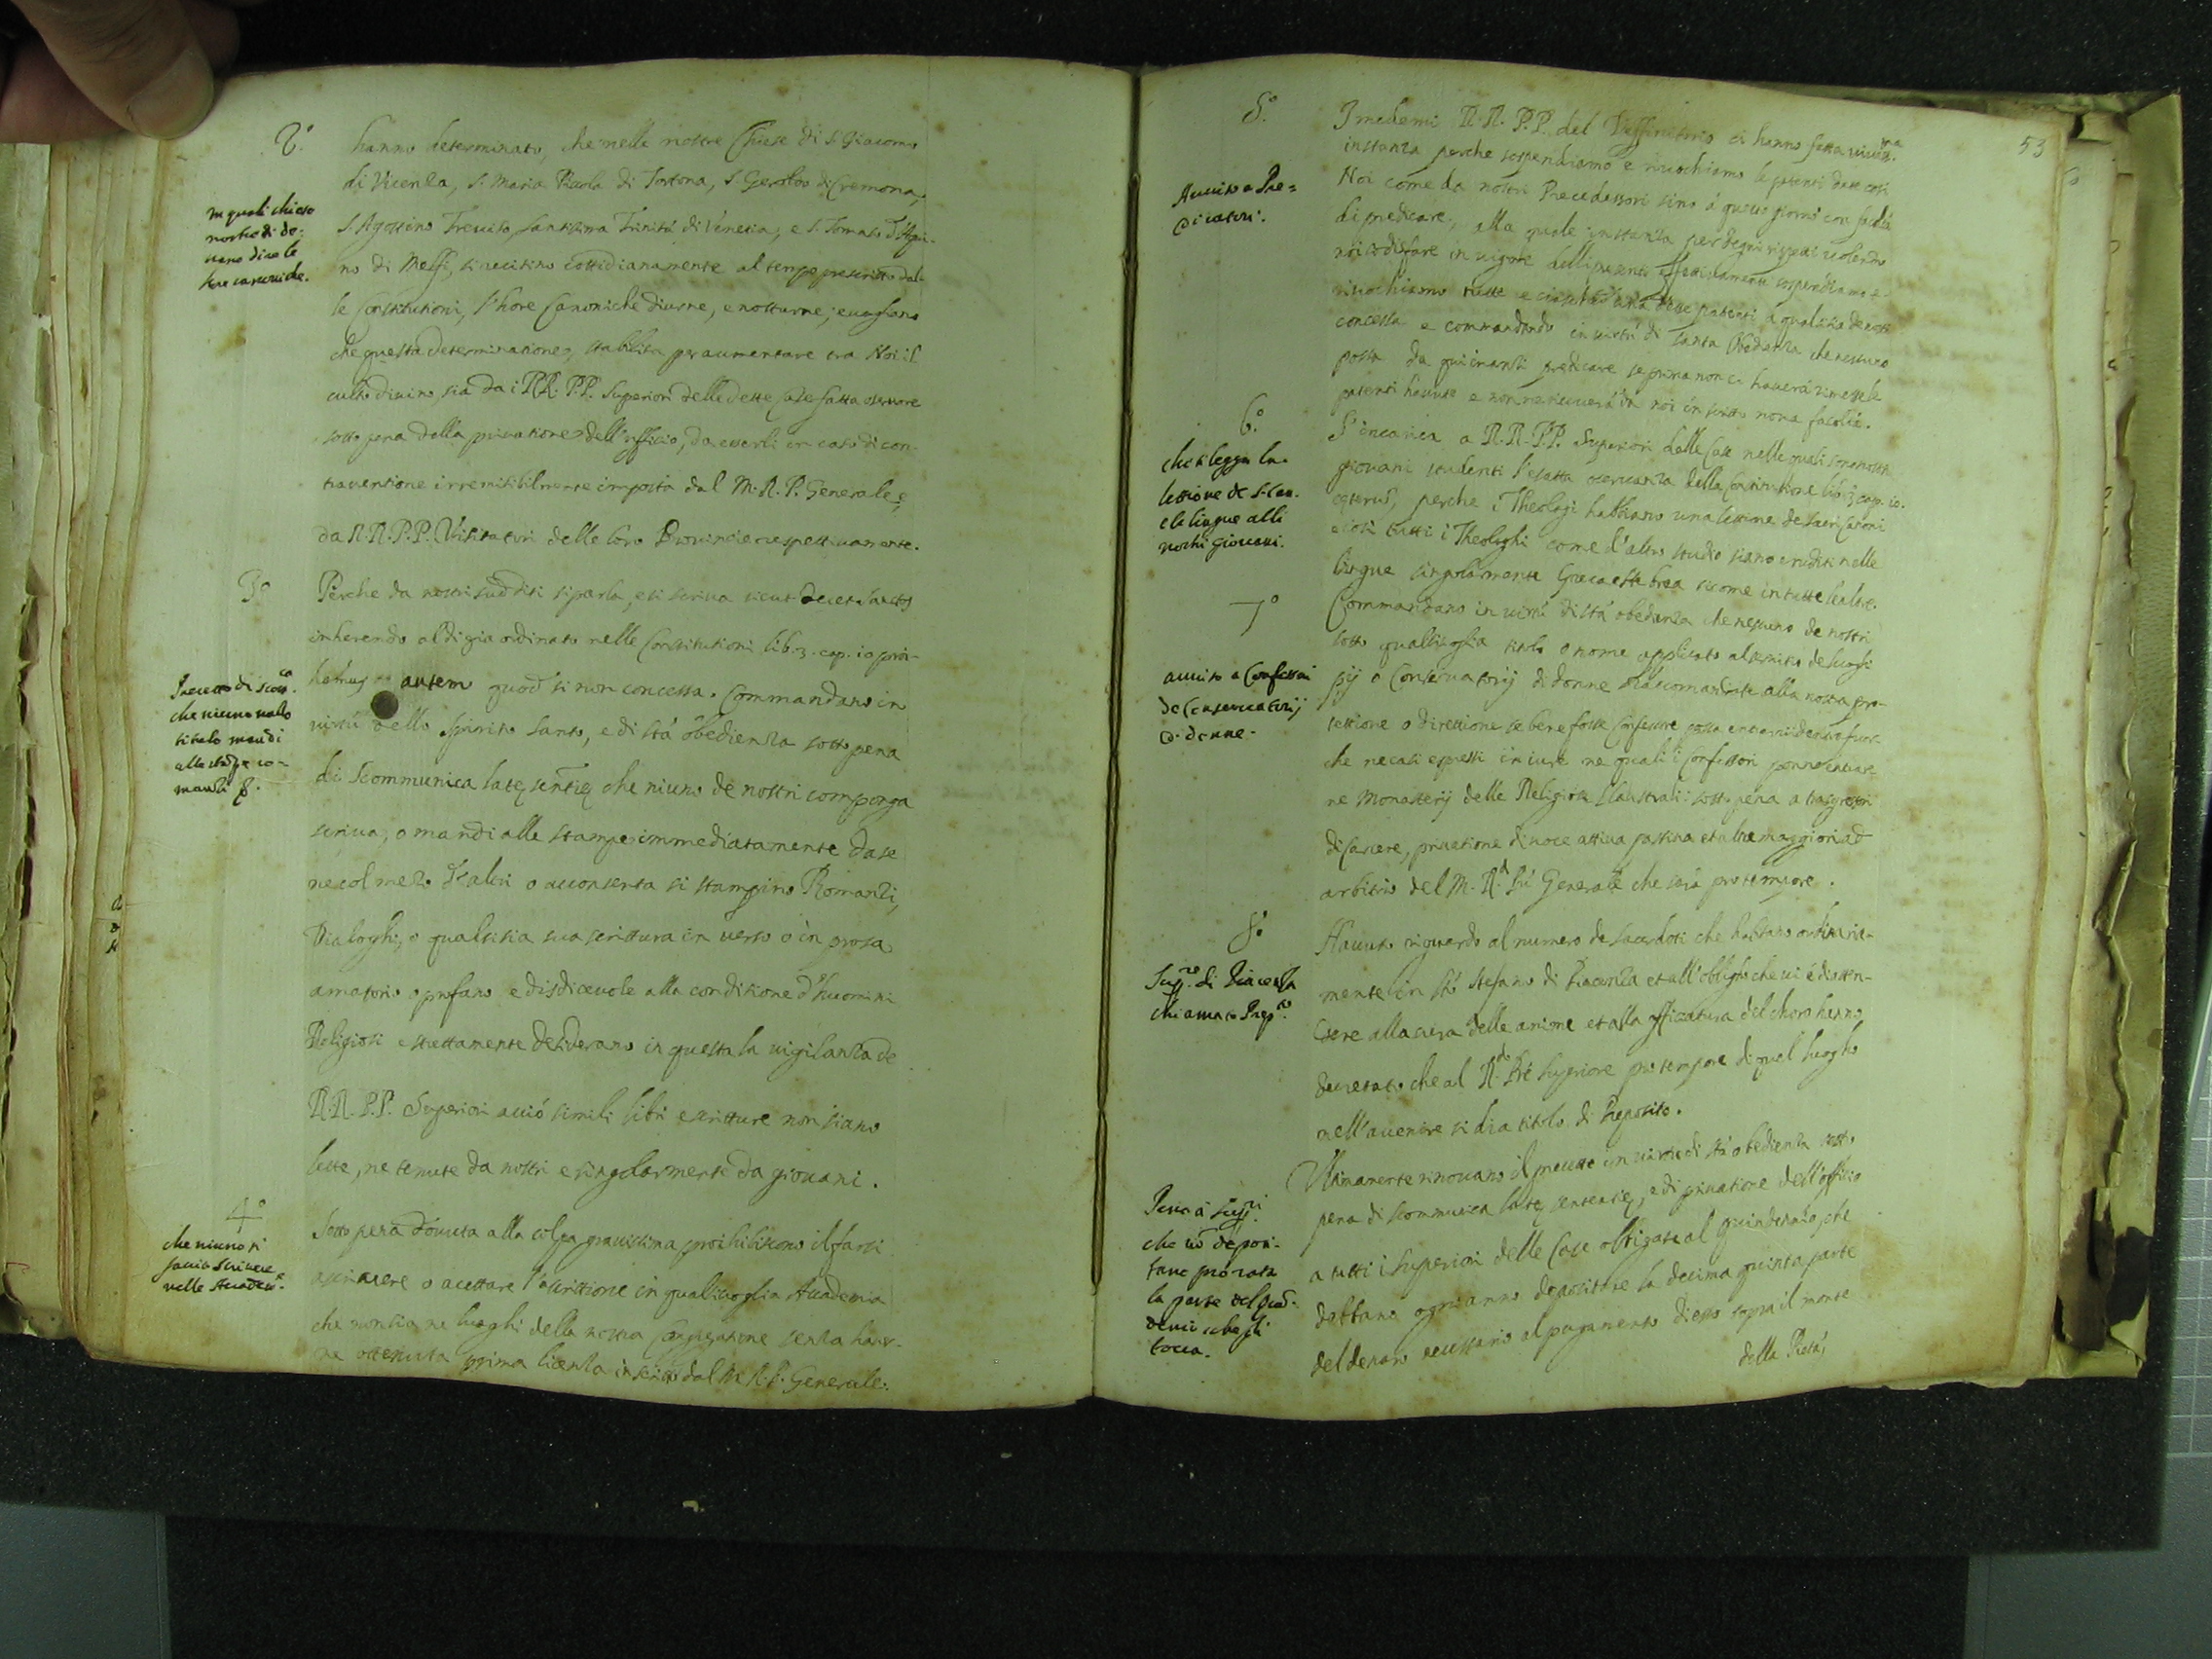 2.º
hanno determinato, che nelle nostre Chiese di S. Giacomo
di Vicenza, S. Maria Picola di Tortona, S. Gerolᵒ di Cremona,
In quali chiese
nostre di do-
S. Agostino Treviso, Santissima Trinità di Venetia, e S. Tomaso d'Aqui-
no di Melfi, si recitino cottidianamente al tempo prescritto dal-
le Constitutioni, l'hore Canoniche diurne, e notturne; e vogliano
che questa determinatione, stabilita per aumentare tra Noi il
culto divino sia da i RR. PP. Superiori delle dette Case fatta osservare
sotto pena della privatione dell'officio, da esserli in caso di con-
traventione irremisibilmente imposta dal M. R. P. Generale, e
da R.R. P.P. Visitatori delle loro Provincie respettivamente.
3º
Perche da nostri sudditi si parla, e si scriva sicut decet Sanctos
inherendo al di gia ordinato nelle Constitutioni lib. 3. cap. 10 proi-
autem quod si non concessa. Commandano in
virtù dello Spirito Santo, e di stà obedienza sotto pena
di Scommunica latę sentię che niuno de nostri componga
scriva, o mandi alle stampe immediatamente da se
ne col mezo d'altri o acconsenta si stampino Romanzi,
Dialoghi, o qualsisia sua scrittura in verso o in prosa
amatorio o profano e disdicevole alla conditione d'huomini
Religiosi e strettamente desiderano in questa la vigilanza de
R.R. P.P. Superiori acciò simili libri e scritture non siano
lette, ne tenute da nostri e singolarmente da giovani.
che niuno vallo
titolo mandi
4º
Sotto pena dovuta alla colpa gravissima prohibiscono il farsi
ascrivere o acettare l'ascrittione in qualsivoglia Academia
che non sia ne luoghi della nostra Congregatione senza haver-
ne ottenuta prima licenza in scritto dal M. R. P. Generale.
che niuno si
facia scrivere
nelle Academ.ᵉ
53
5.º
I medemi R.R. P.P. del Diffinitorio ci hanno fatta
instanza perche sospendiamo e rivochiamo le patenti date così
Noi come da nostri Precedessori sino à questo giorno con facoltà
di predicare, alla quale instanza per degni rispetti volendo
noi sodisfare in vigore delli presenti effettivamente sospendiamo e
rivochiamo tutte e patenti à qualsisia de nostri
concessa e commandando in virtù di santa Obedienza che nessuno
possa da qui inanzi predicare se prima non ci haverà rimesse le
patenti havute e non ne riceverà da noi in scritto nova facoltà.
Avviso a Pre-
dicatori.
6.º
S'incarica a R.R. P.P. Superiori delle Case nelle quali sono nostri
giovani studenti l'esatta osservanza della Constitutione lib. 3 cap. 10.
cęterum, perche i Theologi habbiano una lettione de Sacri Canoni
e così tutti i Theologhi come d'altro studio siano eruditi nelle
lingue singolarmente Greca et Hebrea sicome in tutte l'altre.
che si legga la
lettione de S. Can.
e le lingue alli
nostri giovani.
7º
Commandano in virtù di stà obedienza che nessuno de nostri
sotto qualsivoglia titolo o nome applicato al servitio de luoghi
pij o Conservatorij di donne raccomandate alla nostra pro-
tettione o direttione se bene fosse Confessore possa entrarvi dentro fuor-
che ne casi espressi in iure ne quali i Confessori ponno entrar-
ne Monasterij delle Religiose Claustrali: sotto pena a trasgressori
di Carcere, privatione di voce attiva passiva et altre maggiori ad
arbitrio del M. R.ᵈ Prè Generale che sarà pro tempore.
aviso a Confessori
de Conservatorij
di donne.
8.º
Havuto riguardo al numero de sacerdoti che habitano ordinaria-
mente in Stº Stefano di Piacenza et all'obligho che vi è di atten-
dere alla cura delle anime et alla officiatura del choro hanno
decretato che al R.ᵈᵒ Prè Superiore pro tempore di quel luogho
nell'avenire si dia titolo di Preposito.
Sup.ʳᵉ di Piacenza
chiamato Prep.ᵗᵒ
Ultimamente rinovano il precetto in virtù di stà obedienza sotto
pena di scommunica latę sententię, e di privatione dell'officio
a tutti i Superiori delle Case obligate al quindenio, che
debbano ogni anno depositare la decima quinta parte
del denaro necessario al pagamento di esso sopra il monte
della Pietà,
Pena a Sup.ʳⁱ
che nō deposi-
tano pro rata
la parte del quin-
denio che gli
tocca.